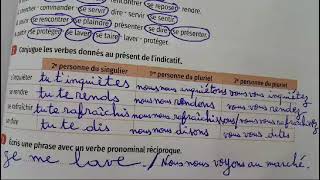 rencontrer se reposer rendre.
chercher - commander se servir dire - servir
se rencontrer se plaindre présenter se dire se présenter
se protéger se laver se taire laver - protéger.
Conjugue les verbes donnés au présent de l'indicatif.
2e personne du singulier 1re personne du pluriel 2e personne du pluriel
s'inquiéter tu t'inquiètes nous nous inquiétons vous vous inquiétez
se rendre tu te rends nous nous rendons vous vous rendez
se rafraîchir tu te rafraîchis nous nous rafraîchissons vous vous rafraîchissez
se dire tu te dis nous nous disons vous vous dites
Écris une phrase avec un verbe pronominal réciproque.
Je me lave. / Nous nous voyons au marché.